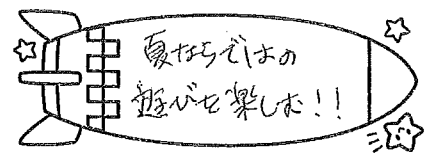 夏ならではの
遊びを楽しむ!!